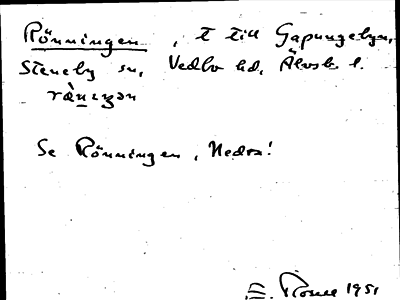 Rönningen, t till Gapungebyn,
Steneby sn, Vedbo hd, Älvsb. l.
rä̀nıŋən
Se Rönningen, Nedra!
E. Rosell 1951